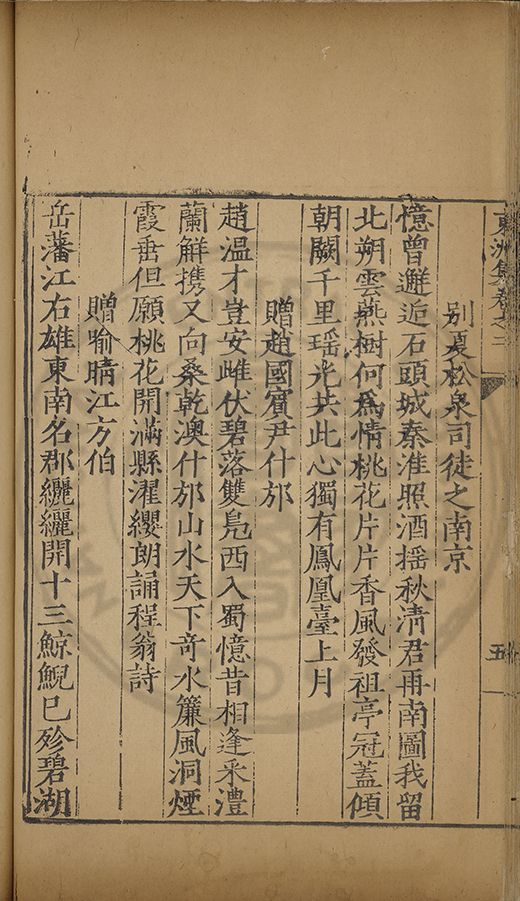 東洲集卷之二
五
別夏松泉司徒之南京
憶曾邂逅石頭城秦淮照酒摇秋清君再南圖我留
北朔雲燕樹何爲情桃花片片香風發祖亭冠蓋傾
朝闕千里瑶光共此心獨有鳳凰臺上月
贈趙國賓尹什邡
趙溫才豈安雌伏碧落雙鳧西入蜀憶昔相逢采澧
蘭觧携又向桑乾澳什邡山水天下奇水簾風洞煙
霞垂但願桃花開滿縣濯纓朗誦程翁詩
贈喻晴江方伯
岳藩江右雄東南名郡纚纚開十三鯨鯢已殄碧湖